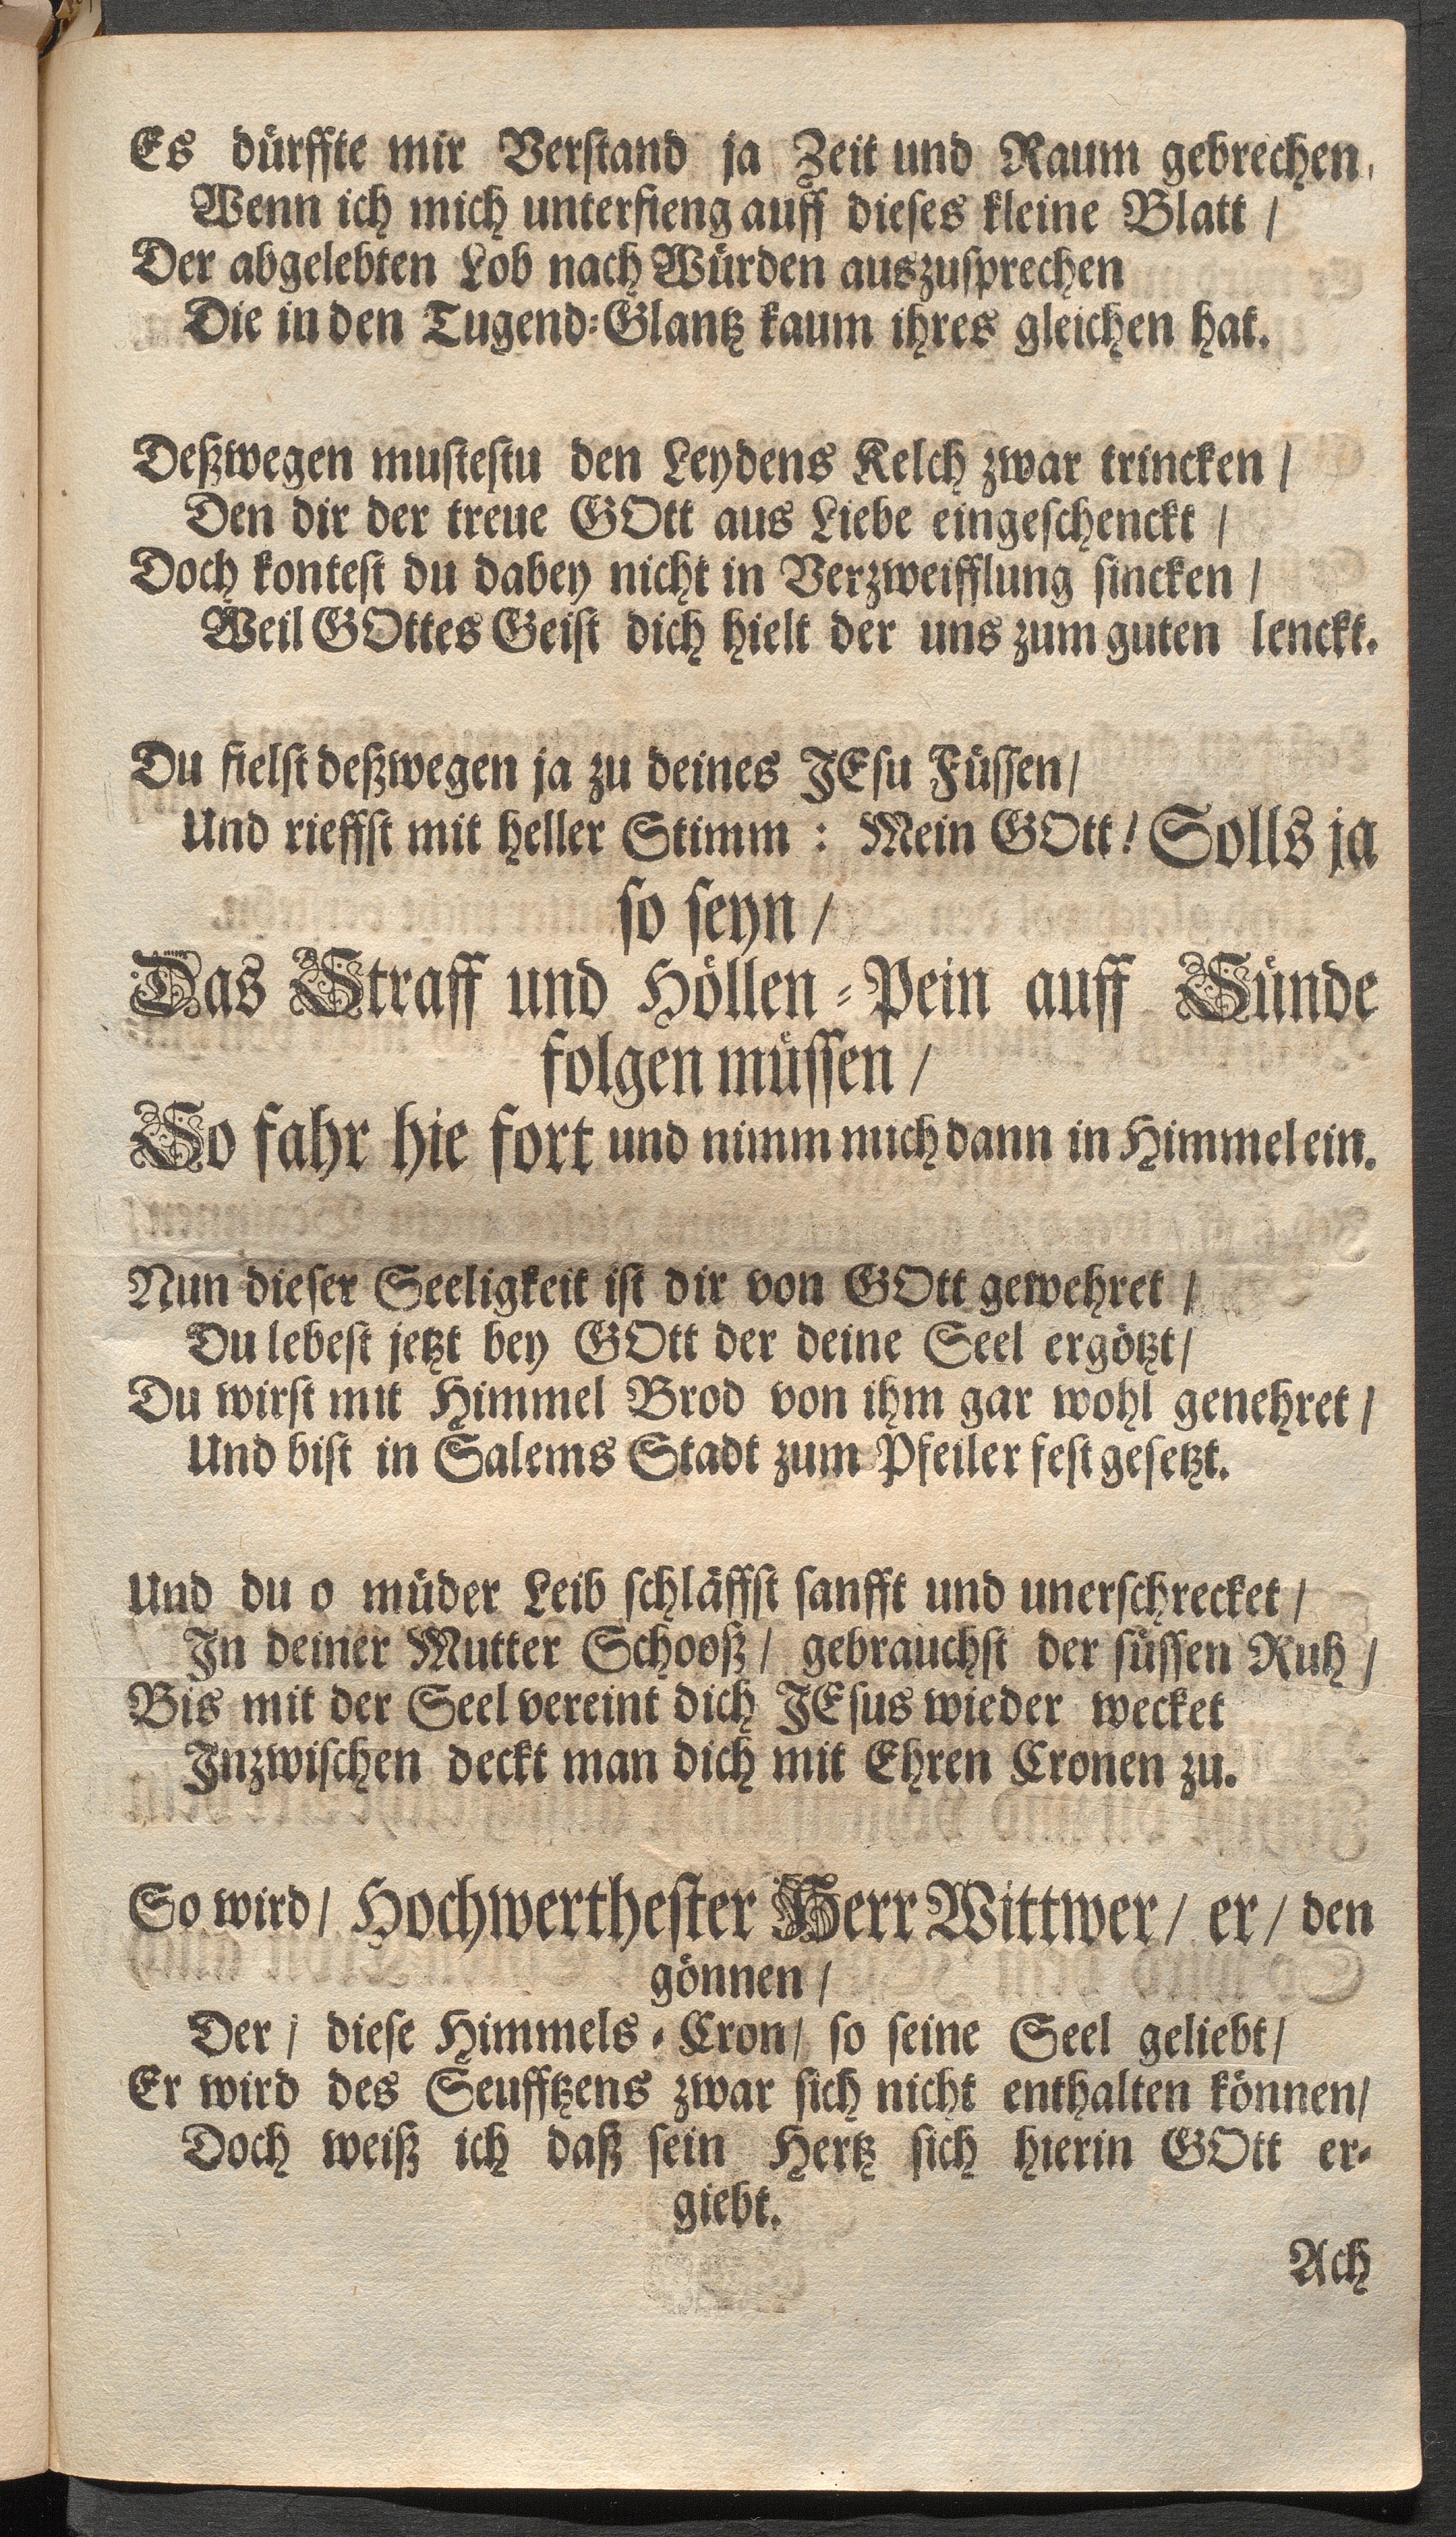 Es dürffte mir Verstand ja Zeit und Raum gebrechen,
Wenn ich mich unterfieng auff dieses kleine Blatt /
Der abgelebten Lob nach Würden auszusprechen
Die in den Tugend-Glantz kaum ihres gleichen hat.
Deßwegen mustestu den Leydens Kelch zwar trincken /
Den dir der treue GOtt aus Liebe eingeschenckt /
Doch kontest du dabey nicht in Verzweifflung sincken /
Weil GOttes Geist dich hielt der uns zum guten lenckt.
Du fielst deßwegen ja zu deines JEsu Füssen /
Und rieffst mit heller Stimm : Mein GOtt! Solls ja
so seyn /
Das Straff und Höllen-Pein auff Sünde
folgen müssen /
So fahr hie fort und nimm mich dann in Himmel ein.
Nun dieser Seeligkeit ist dir von GOtt gewehret /
Du lebest jetzt bey GOtt der deine Seel ergötzt /
Du wirst mit Himmel Brod von ihm gar wohl genehret /
Und bist in Salems Stadt zum Pfeiler fest gesetzt.
Und du o müder Leib schläffst sanfft und unerschrecket /
In deiner Mutter Schooß / gebrauchst der süssen Ruh /
Bis mit der Seel vereint dich JEsus wieder wecket
Inzwischen deckt man dich mit Ehren Cronen zu.
So wird / Hochwerthester Herr Wittwer / er / den
gönnen /
Der / diese Himmels-Cron / so seine Seel geliebt /
Er wird des Seufftzens zwar sich nicht enthalten können /
Doch weiß ich daß sein Hertz sich hierin GOtt er-
giebt.
Ach